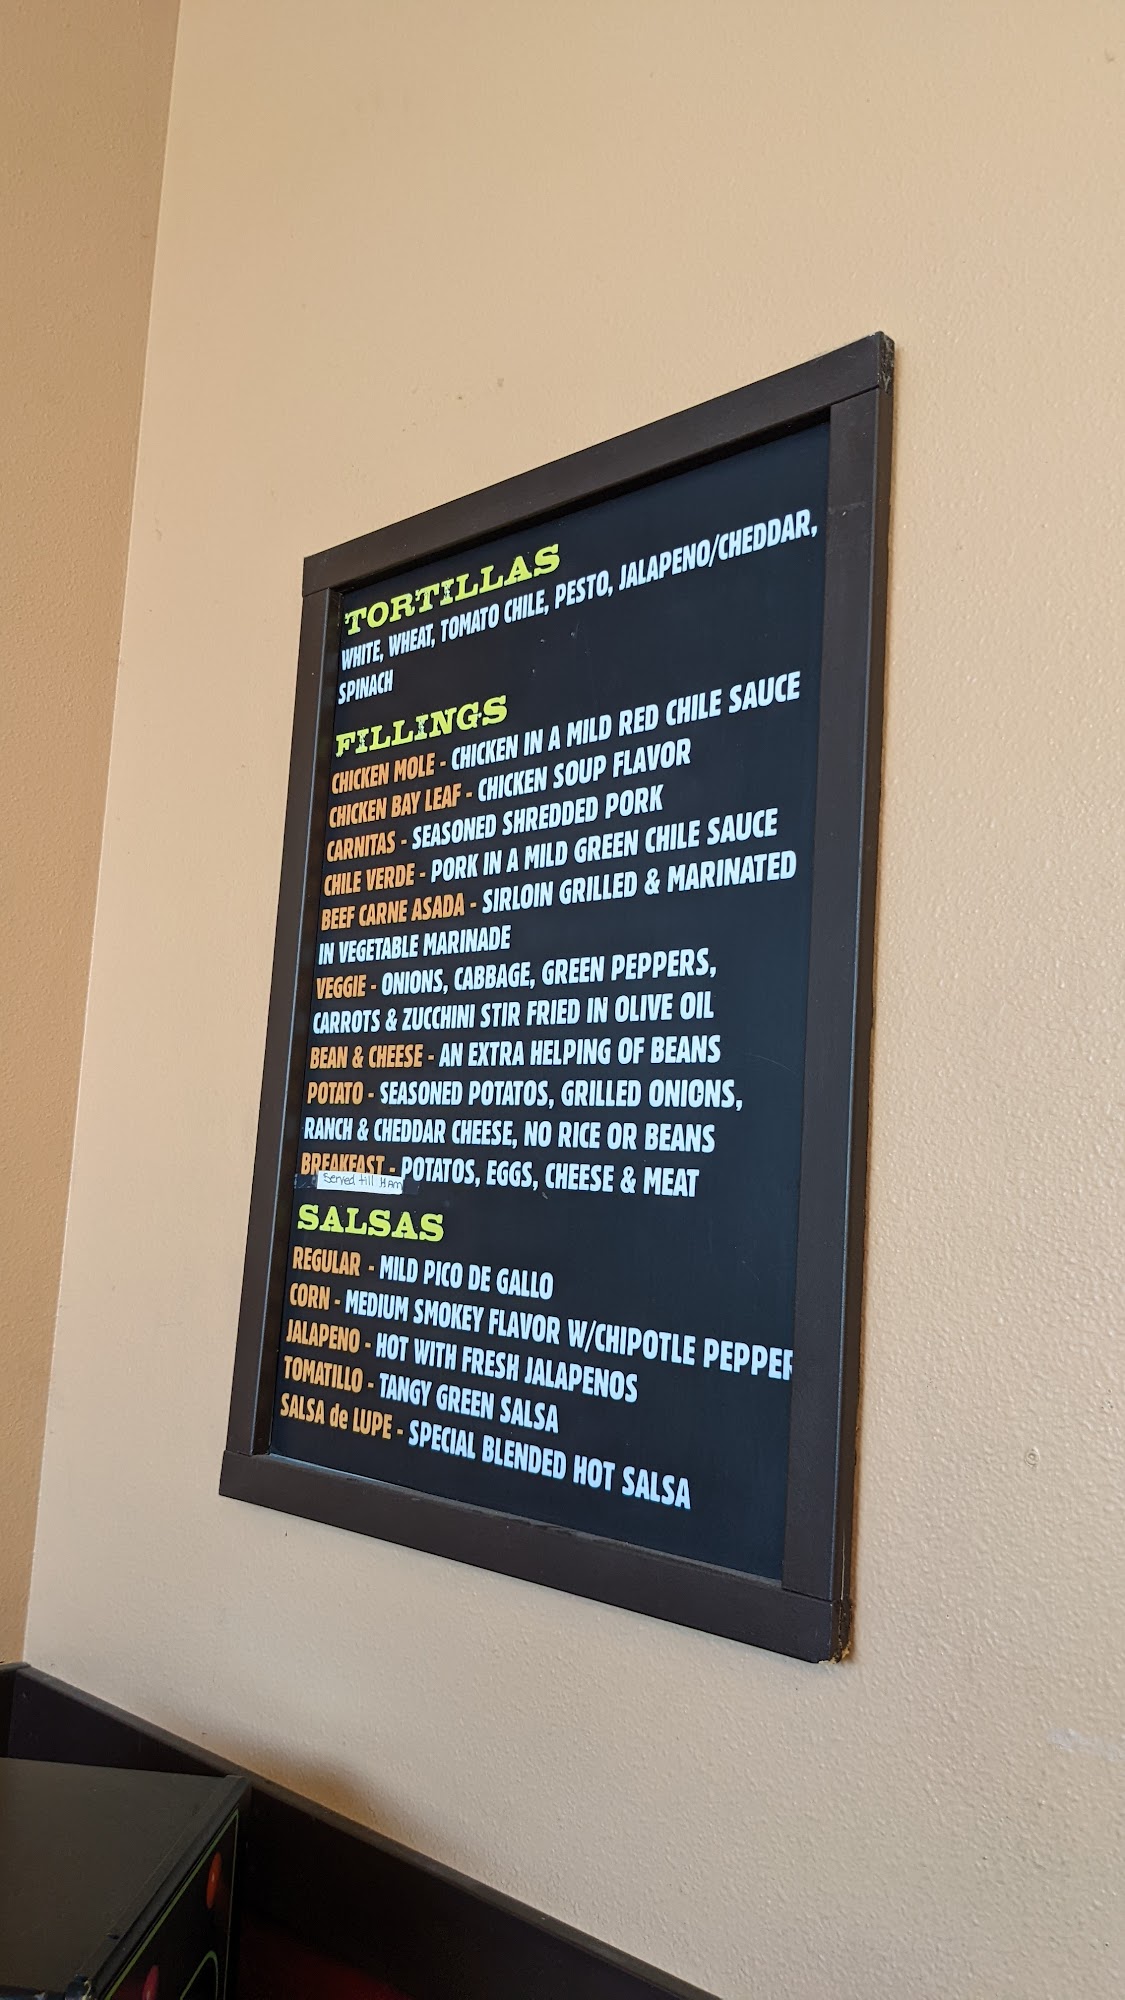 TORTILLAS
WHITE, WHEAT, TOMATO CHILE, PESTO, JALAPENO/CHEDDAR,
SPINACH
FILLINGS
CHICKEN MOLE - CHICKEN IN A MILD RED CHILE SAUCE
CHICKEN BAY LEAF - CHICKEN SOUP FLAVOR
CARNITAS - SEASONED SHREDDED PORK
CHILE VERDE - PORK IN A MILD GREEN CHILE SAUCE
BEEF CARNE ASADA - SIRLOIN GRILLED & MARINATED
IN VEGETABLE MARINADE
VEGGIE - ONIONS, CABBAGE, GREEN PEPPERS,
CARROTS & ZUCCHINI STIR FRIED IN OLIVE OIL
BEAN & CHEESE - AN EXTRA HELPING OF BEANS
POTATO - SEASONED POTATOS, GRILLED ONIONS,
RANCH & CHEDDAR CHEESE, NO RICE OR BEANS
BREAKFAST - POTATOS, EGGS, CHEESE & MEAT
Served till
SALSAS
REGULAR - MILD PICO DE GALLO
CORN - MEDIUM SMOKEY FLAVOR W/CHIPOTLE PEPPER
JALAPENO - HOT WITH FRESH JALAPENOS
TOMATILLO - TANGY GREEN SALSA
SALSA de LUPE - SPECIAL BLENDED HOT SALSA